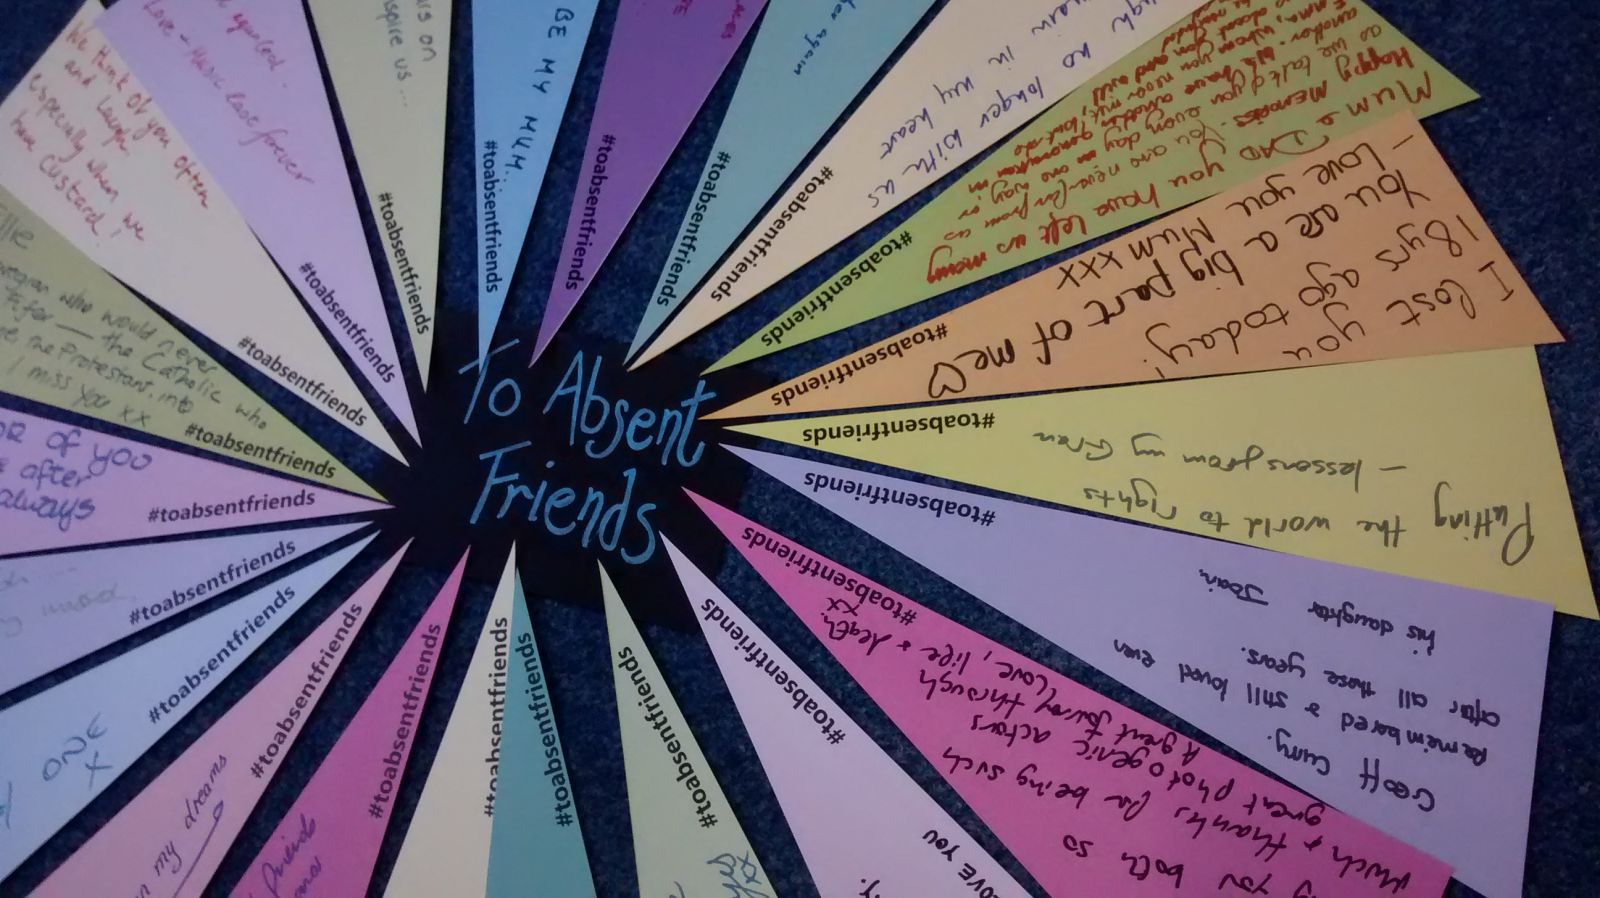 To Absent
Friends
#toabsentfriends
BE MY MUM...
#toabsentfriends
#toabsentfriends
again
#toabsentfriends
no longer with us
in my heart
#toabsentfriends
Mum & DAD you have left us many
Happy Memories. You are never far from us
as we talk of you every day in one way or
another. We have another generation in
Emma, whom you never met, but she
#toabsentfriends
I lost you
18yrs ago today!
You are a big part of me♡
- Love you Mum xxx
#toabsentfriends
Putting the world to rights
- lessons from my Gran
#toabsentfriends
Geoff Curry.
Remembered & still loved even
after all these years.
his daughter Jean.
#toabsentfriends
you both so
much & thanks for being such
great photogenic actors
A great journey through
love, life & death.
xx
#toabsentfriends
LOVE YOU
#toabsentfriends
xx
#toabsentfriends
#toabsentfriends
#toabsentfriends
friends
#toabsentfriends
my dreams
#toabsentfriends
ONE
x
#toabsentfriends
#toabsentfriends
OF YOU
after
always
#toabsentfriends
who would never
the Catholic who
the Protestans into
I miss you xx
#toabsentfriends
We think of you often
and laugh
especially when we
have Custard!
#toabsentfriends
Love - Music Lase forever
#toabsentfriends
on
inspire us ...
#toabsentfriends